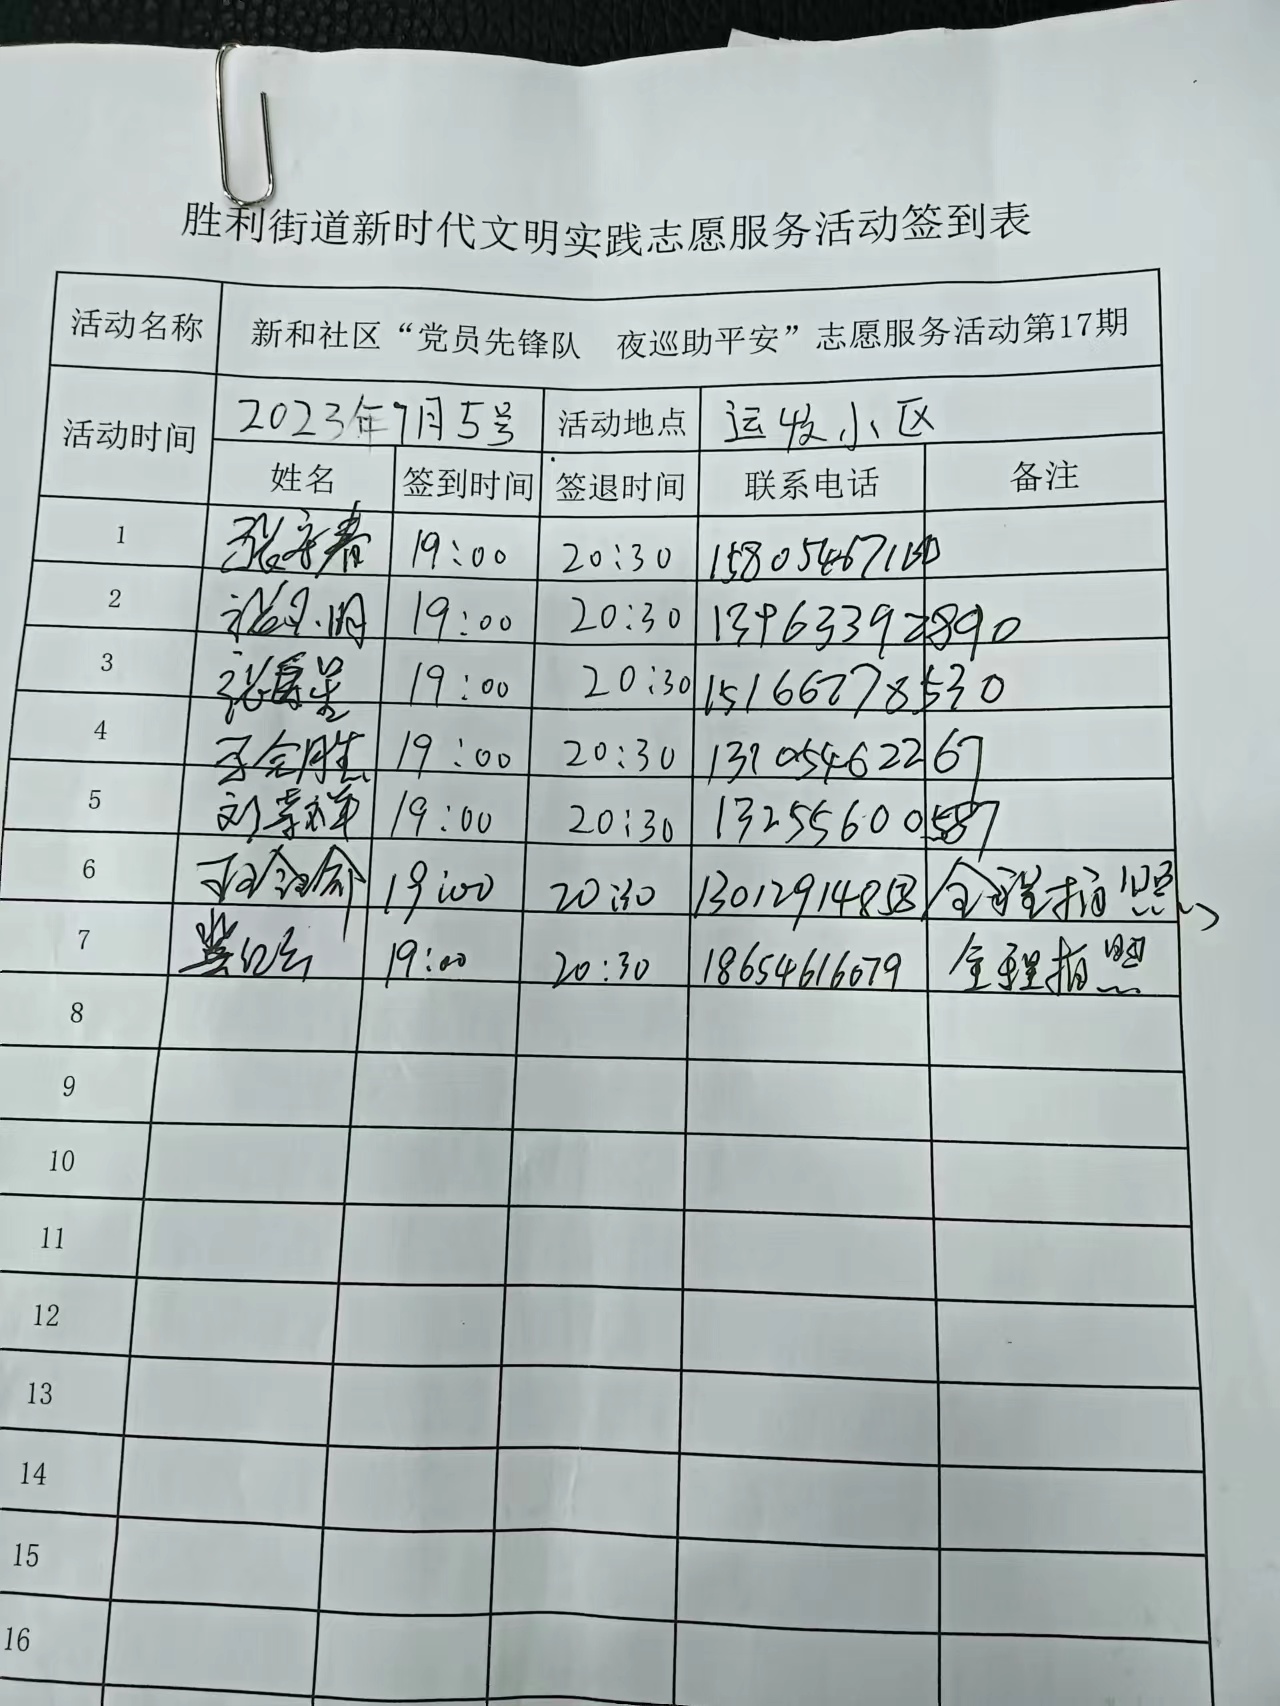 胜利街道新时代文明实践志愿服务活动签到表
活动名称 新和社区“党员先锋队 夜巡助平安”志愿服务活动第17期
活动时间 2023年7月5号 活动地点 运发小区
姓名 签到时间 签退时间 联系电话 备注
1 19:00 20:30 158054671
2 19:00 20:30 13963392890
3 19:00 20:30 15166778530
4 19:00 20:30 13705462267
5 19:00 20:30 13255600587
6 19:00 20:30 13012914858 全程拍照
7 19:00 20:30 18654616079 全程拍照
8
9
10
11
12
13
14
15
16